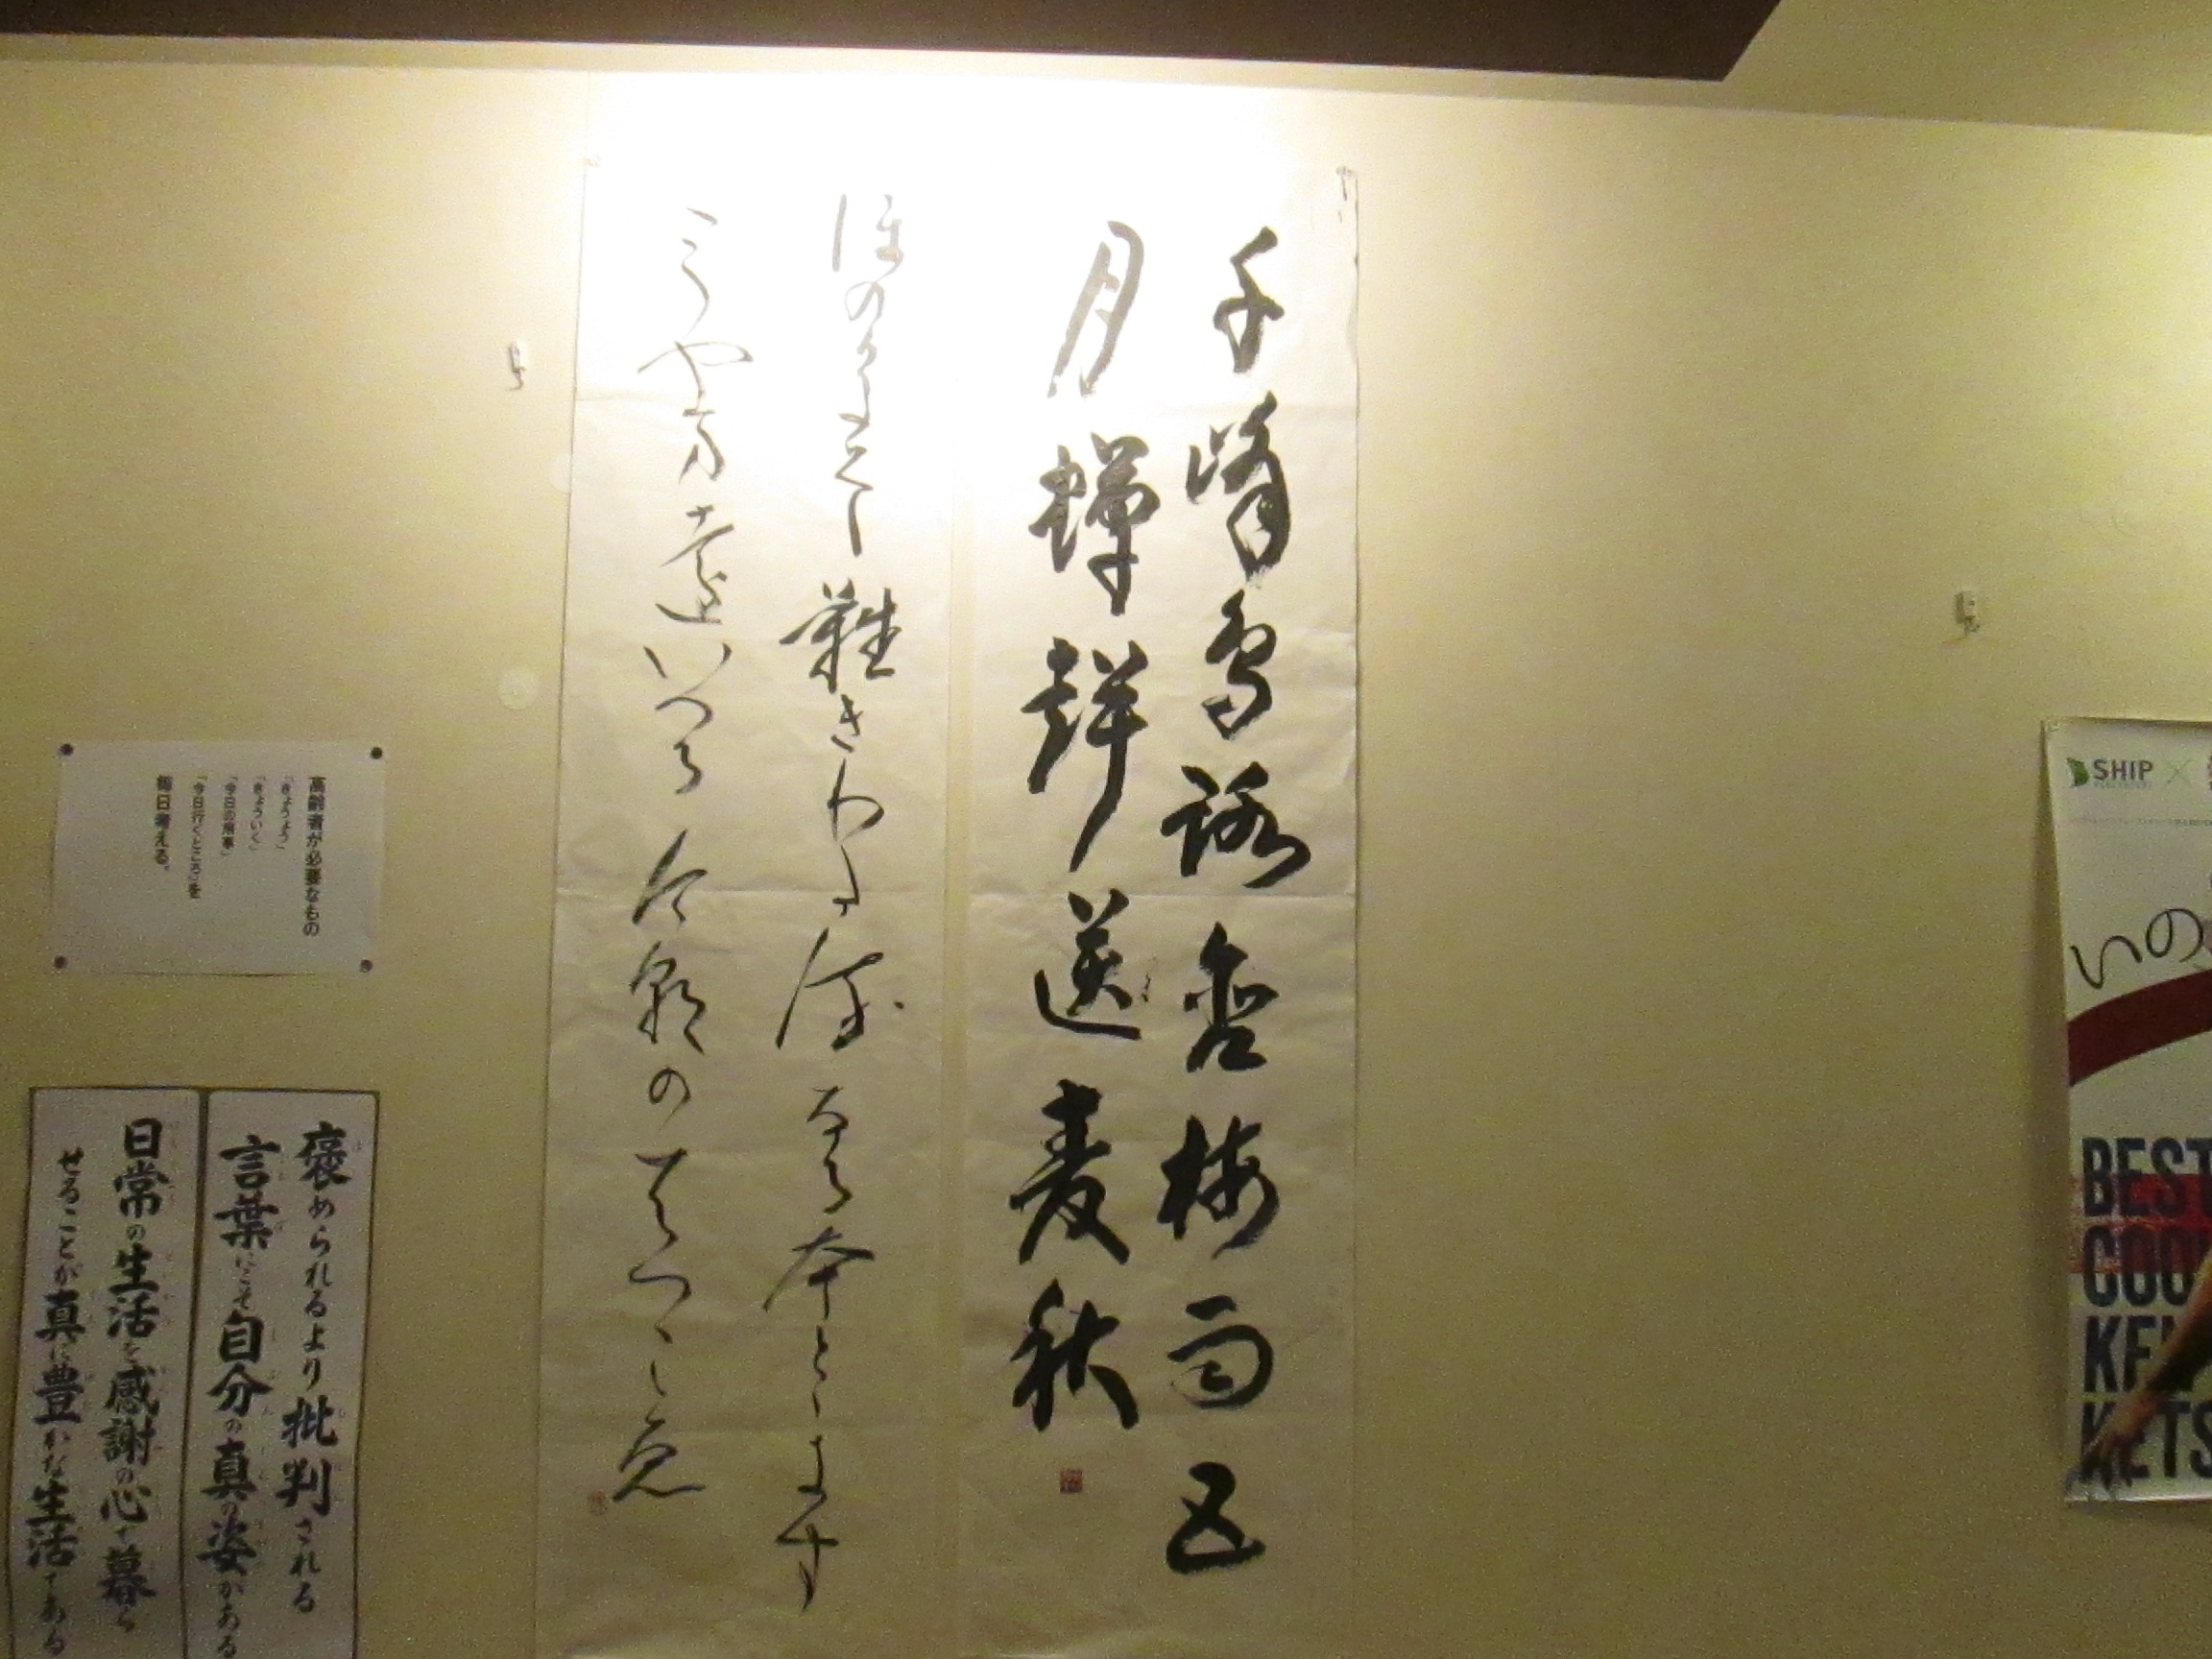 千峰鳥路含梅雨五
月蝉声送麦秋
ほのかにそ難きわたるなる本とゝきす
みやま遠いつる今朝のはつこゑ
高齢者が必要なもの
「きょうよう」
「きょういく」
「今日の用事」
「今日行くところ」を
毎日考える。
褒められるより批判される
言葉にこそ自分の真の姿がある
日常の生活を感謝の心で暮ら
せることが真に豊かな生活である
SHIP ×
いの
BEST